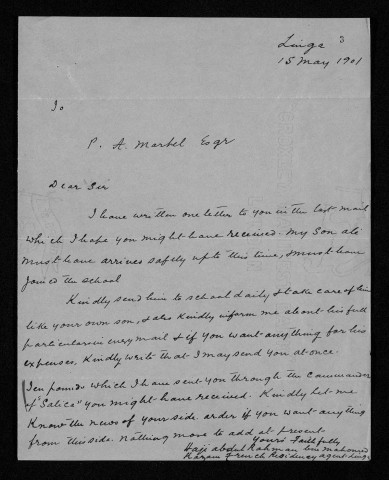 3
Linga
15 May 1901
To
P. A. Martel Esqr
Dear Sir
I have written one letter to you in the last mail
which I hope you might have received. My Son
must have arrives safely upto this time, & must have
joined the school
Kindly send him to school daily & take care of him
like your own son, & also Kindly inform me about his full
particulars in every mail & if you want anything for his
expenses, Kindly write that I may send you at once.
Ten pounds which I have sent you through the Commander
of "Salice" you might have received. Kindly let me
Know the news of your side order if you want anything
from this side. Nothing more to add at present
Yours Faithfully
Haji abdul Rahman bin mahomed
Kazam French Residency agent Linga